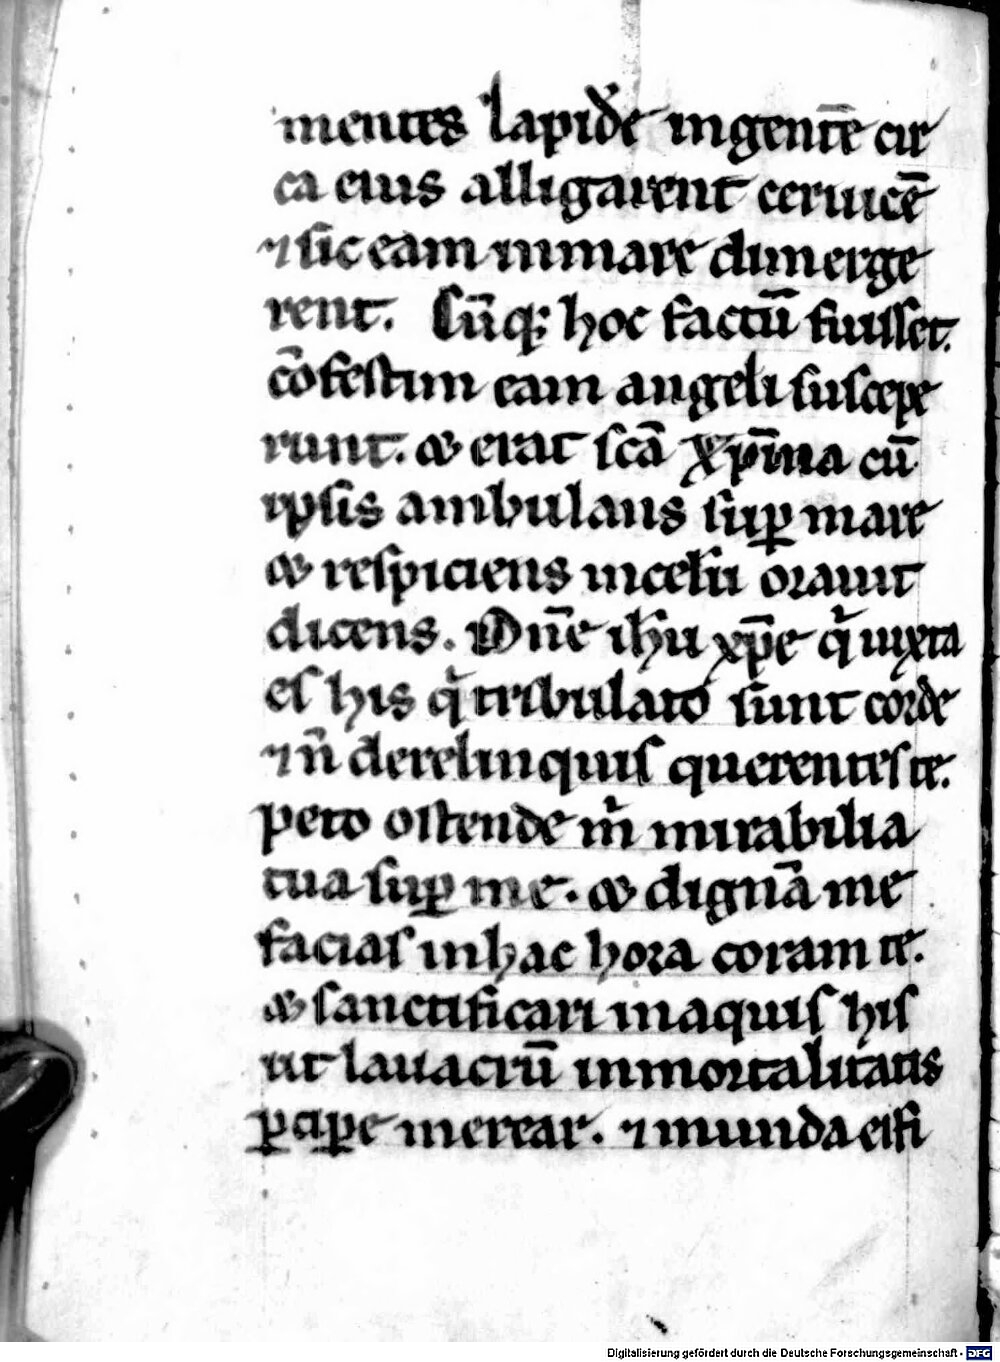 mentes lapidē ingentē cir
ca eius alligarent ceruicē
⁊ sic eam in mare dimerge
rent. Cū̄q; hoc factū fuisset.
cōfestim eam angeli suscepe
runt. & erat sc̄a xp̄ina cū
ipsis ambulans suꝑ mare
& respiciens in celū orauit
dicens. Dn̄e ih̄u xp̄e qͥ iuxta
es his qͥ tribulato sunt corde
⁊ n̄ derelinquis querentes te.
peto ostende m̄ mirabilia
tua suꝑ me. & dignā me
facias in hac hora coram te.
& sanctificari in aquis his
ut lauacrū inmortalitatis
ꝑciꝑe merear. ⁊ munda eifi
Digitalisierung gefördert durch die Deutsche Forschungsgemeinschaft - DFG